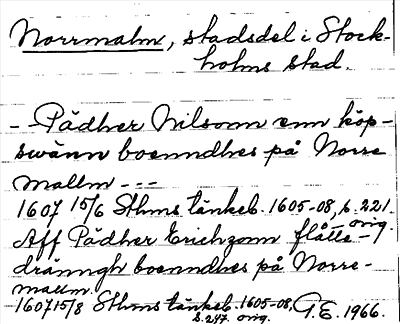 Norrmalm, stadsdel i Stock-
holms stad.
- - Pådher Nilsonn enn köp-
swänn boenndhes på Norre
mallm - - -
1607 15/6 Sthms tänkeb. 1605-08, s. 221.
orig.
Aff Pådher Erichzonn flötte-
dränngh boenndhes på Norre-
mallm.
1607 15/8 Sthms tänkeb. 1605-08, G.E. 1966.
s. 247 orig.